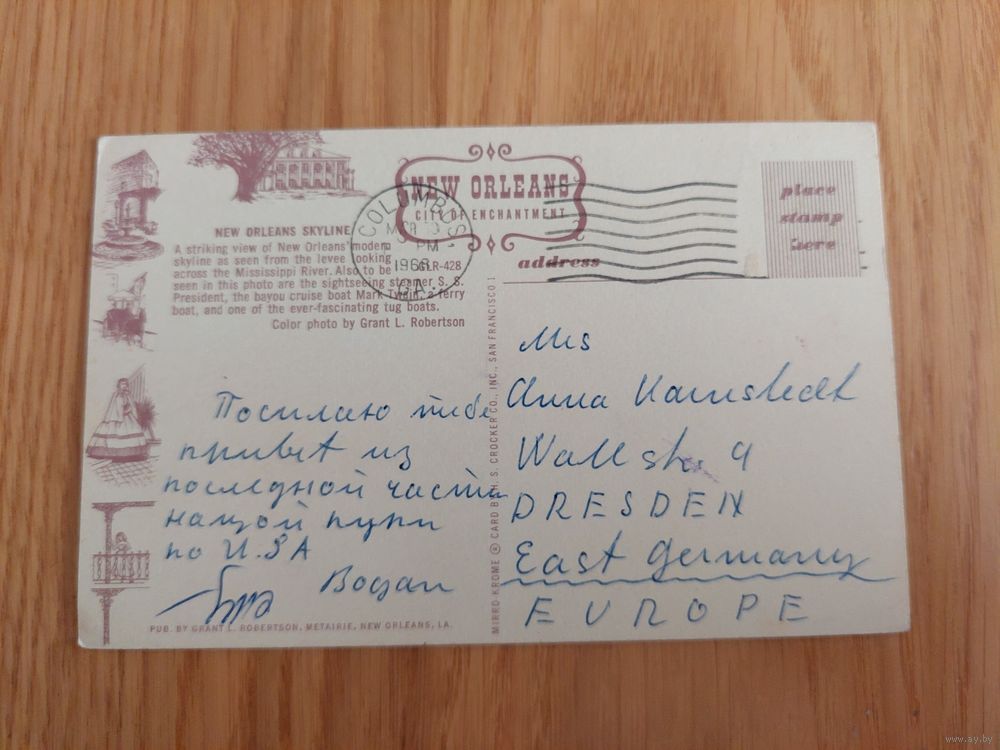 NEW ORLEANS
CITY OF ENCHANTMENT
COLUMBUS
PM
1968
GA.
place
stamp
here
NEW ORLEANS SKYLINE
A striking view of New Orleans' modern
skyline as seen from the levee looking
across the Mississippi River. Also to be
seen in this photo are the sightseeing steamer S. S.
President, the bayou cruise boat Mark Twain, a ferry
boat, and one of the ever-fascinating tug boats.
Color photo by Grant L. Robertson
GLR-428
address
Посилаю тибе
привет из
последной части
нашой пути
по U.SA
Bogdan
PUB. BY GRANT L. ROBERTSON, METAIRIE, NEW ORLEANS, LA.
MIRRO-KROME ® CARD BY H. S. CROCKER CO., INC., SAN FRANCISCO 1
Mrs
Anna
Wallstr. 9
DRESDEN
East Germany
EUROPE
www.ay.by